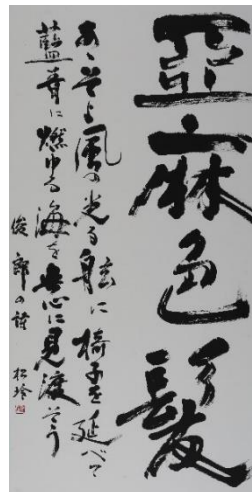 亞麻色髪
あゝそよ風の光る舷に椅子を延べて
藍青に燃ゆる海を無心に見渡そう
俊郎の詩